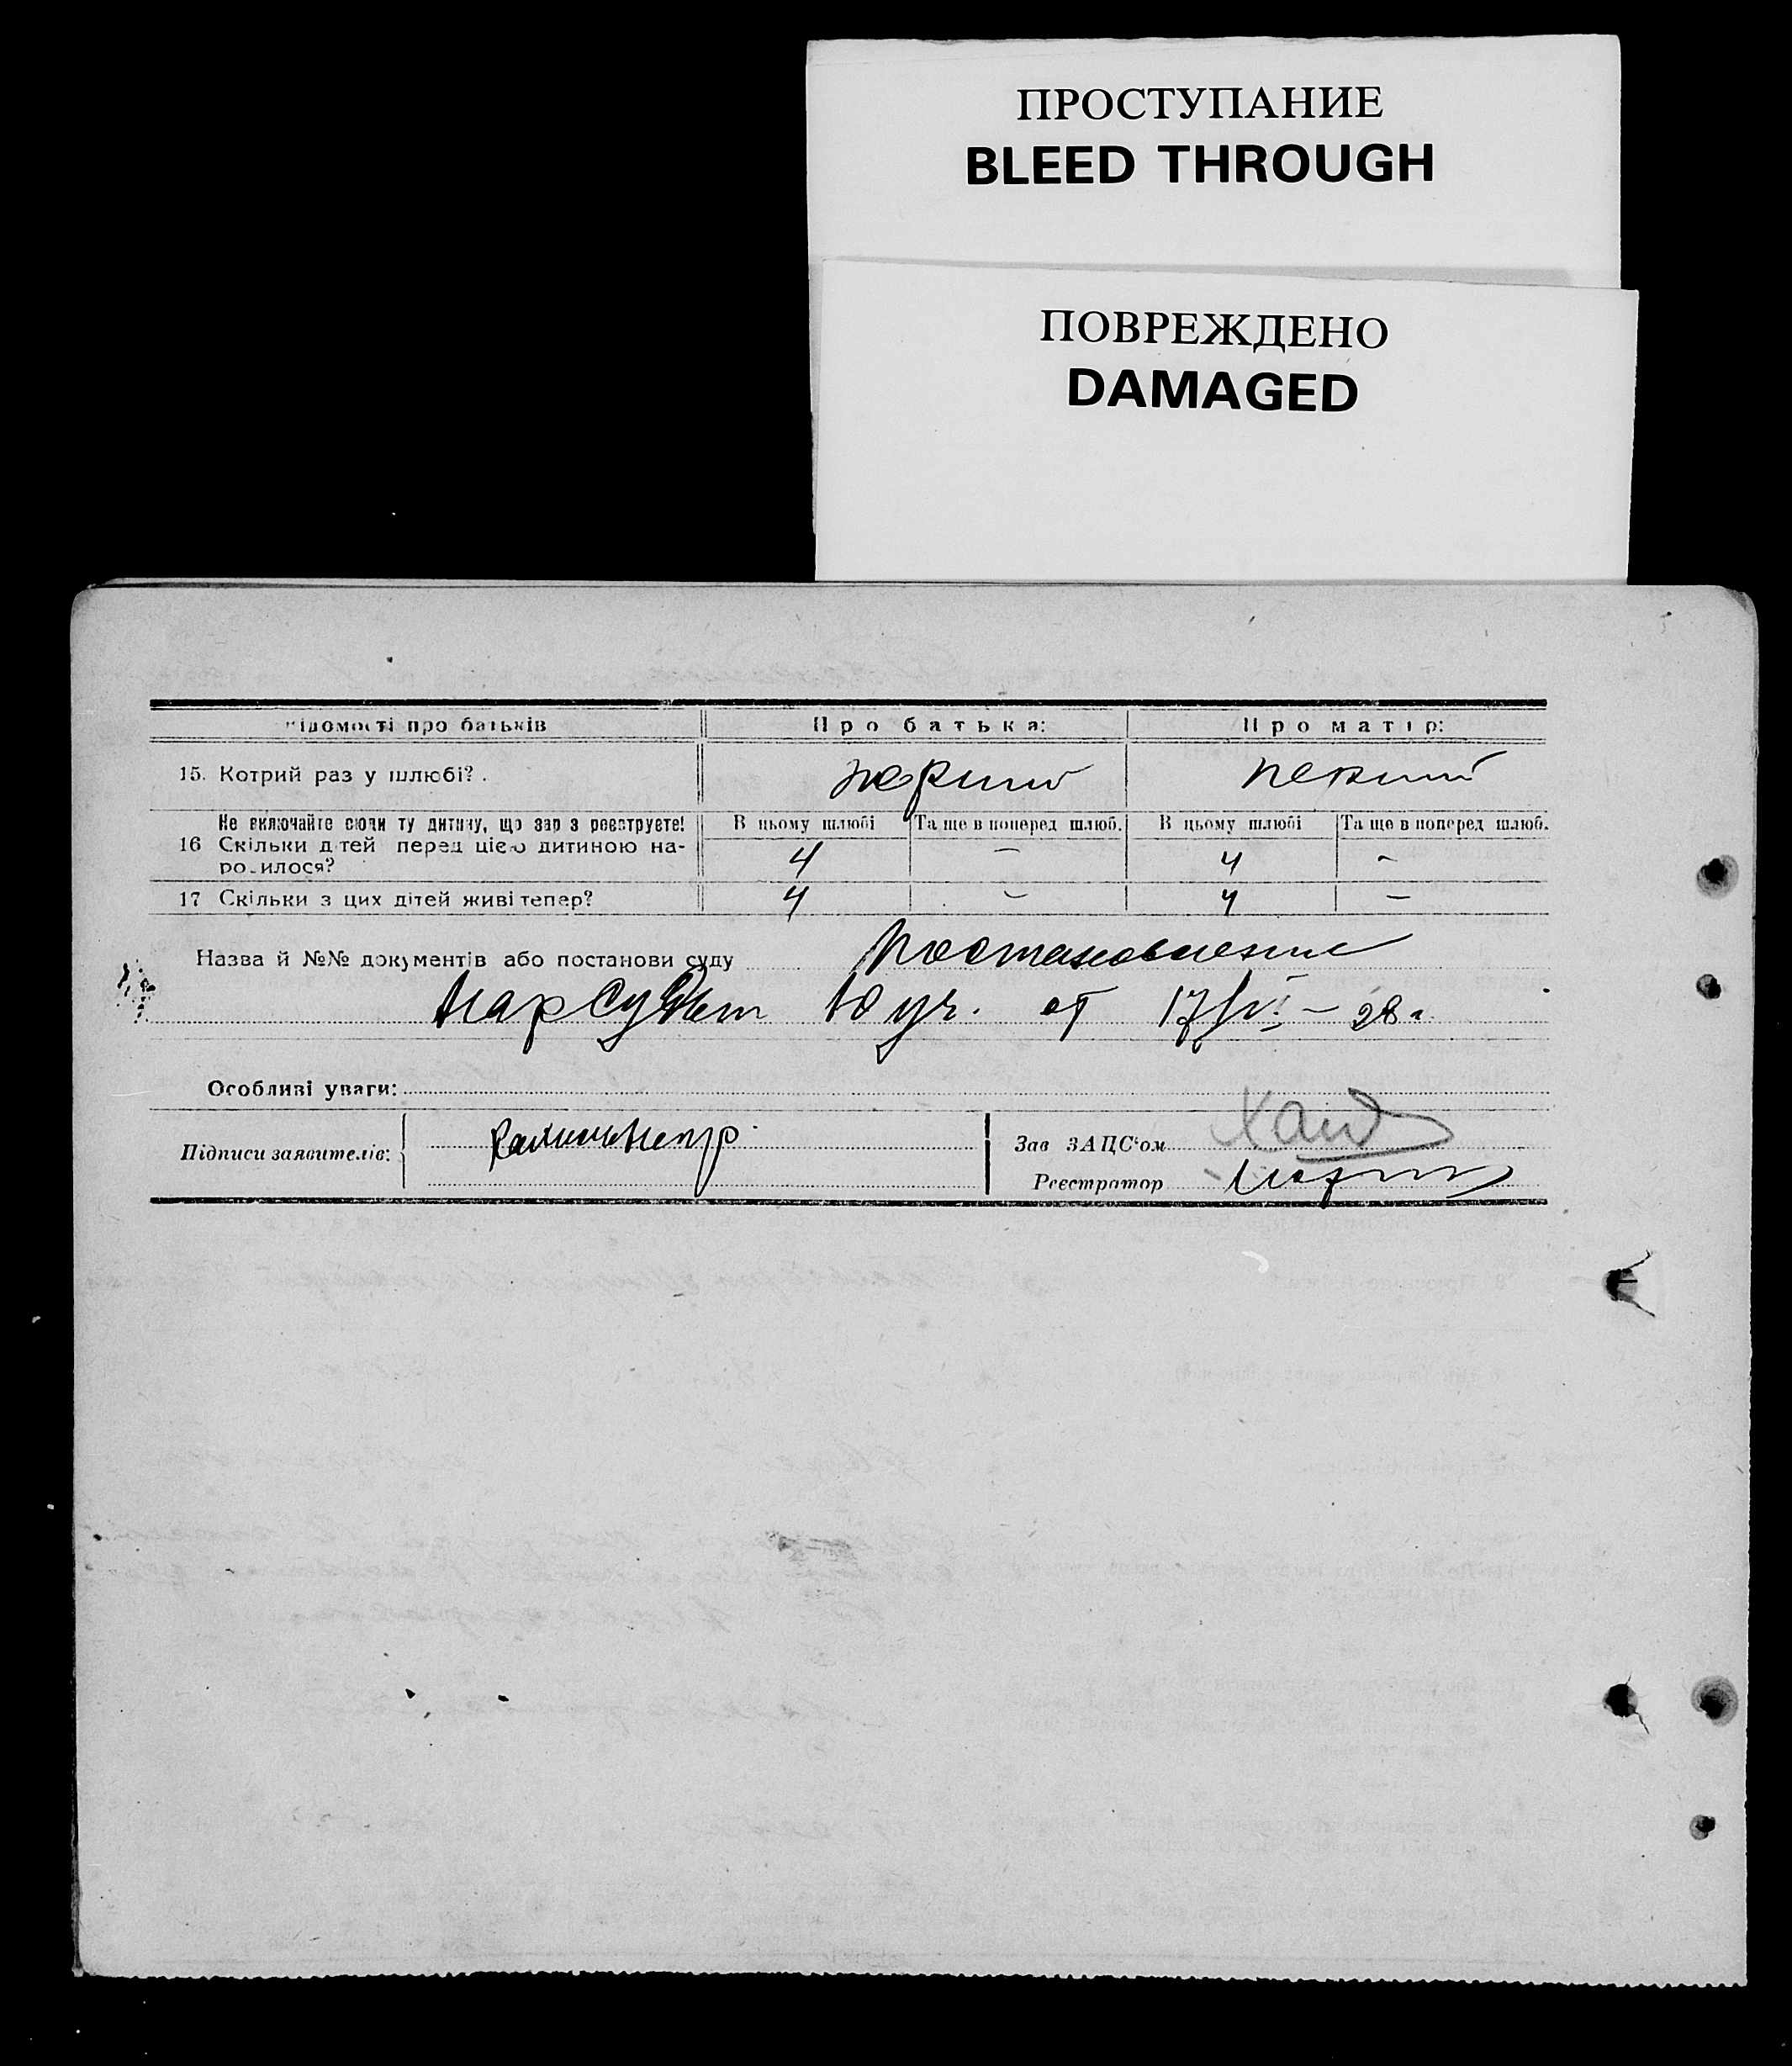 ПРОСТУПАНИЕ
BLEED THROUGH
ПОВРЕЖДЕНО
DAMAGED
Відомості про батьків
Про батька:
Про матір:
15. Котрий раз у шлюбі?
перший
перший
Не включайте сюди ту дитину, що зараз реєструєте!
В цьому шлюбі
Та ще в поперед шлюб.
В цьому шлюбі
Та ще в поперед шлюб.
16 Скільки дітей перед цією дитиною на-
родилося?
4
–
4
–
17 Скільки з цих дітей живі тепер?
4
–
4
–
Назва й №№ документів або постанови суду Постановление
НарСуда 10 уч. от 17/VI – 28 г.
Особливі уваги:
Підписи заявителів:
Зав ЗАЦС'ом
Реєстратор